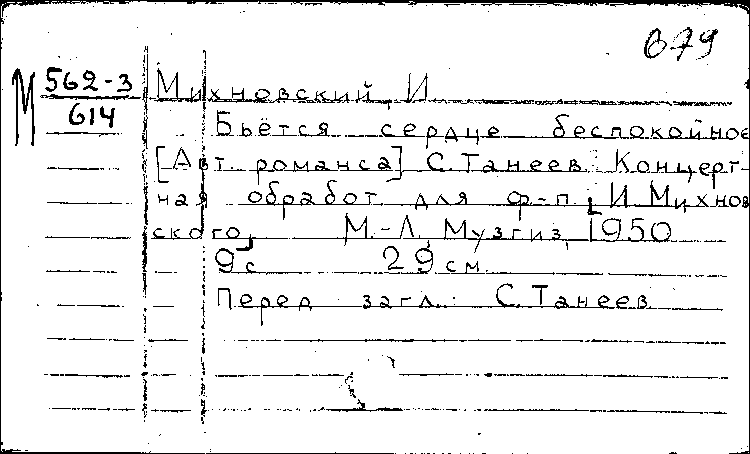 679
М 562-3 Михновский, И
614
Бьётся сердце беспокойное
[Авт. романса] С. Танеев. Концерт-
ная обработ. для ф-п. [И. Михнов
ского]. М.-Л., Музгиз, 1950
9 с 29 см.
Перед загл.: С. Танеев